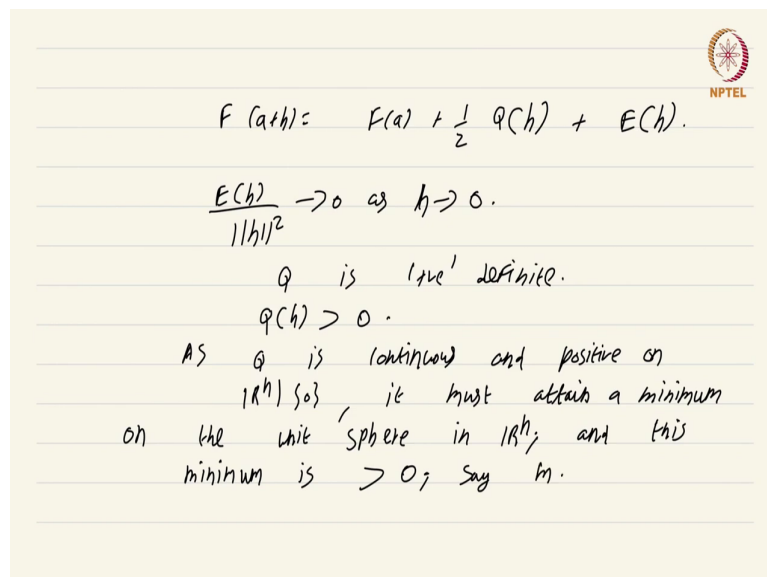 NPTEL
F(a+h) = F(a) + 1/2 Q(h) + E(h).
E(h)/||h||² -> 0 as h -> 0.
Q is '+ve' definite.
Q(h) > 0.
As Q is continuous and positive on
ℝⁿ\{0}, it must attain a minimum
on the unit sphere in ℝⁿ; and this
minimum is > 0; say m.